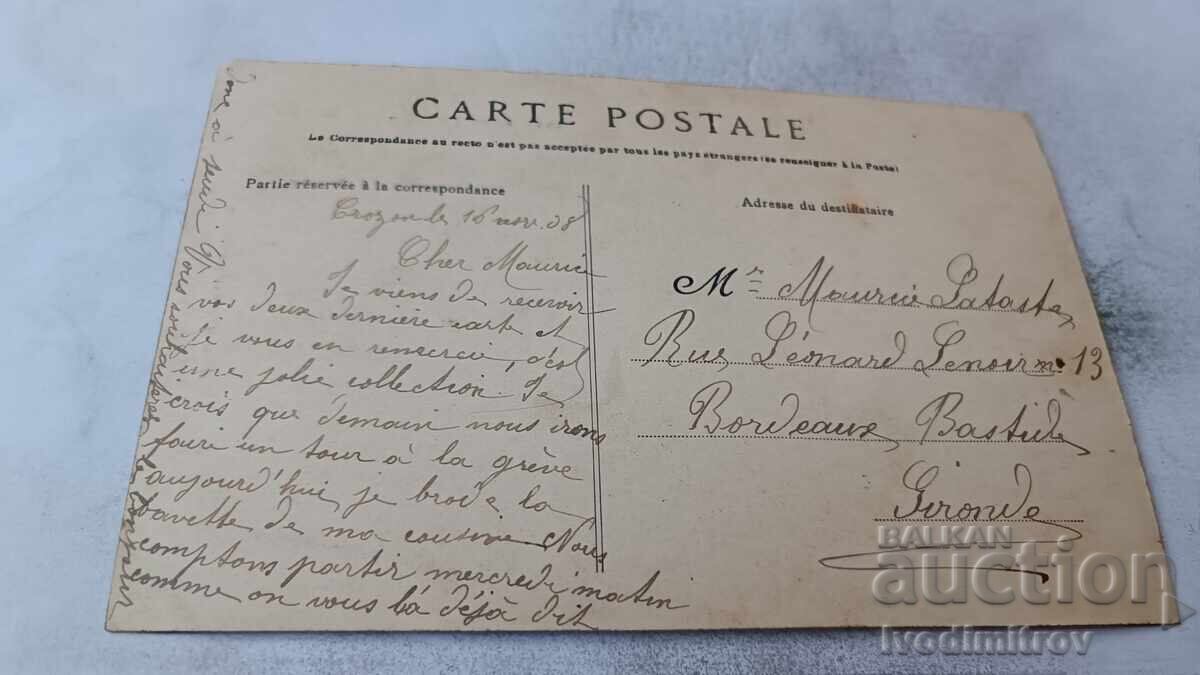 CARTE POSTALE
Le Correspondance au recto n'est pas acceptée par tous les pays étrangers (se renseigner à la Poste)
Partie réservée à la correspondance
Adresse du destinataire
Crozon le 16 nov. 08
Cher Maurice
Je viens de recevoir
vos deux dernière carte et
je vous en remercie, c'est
une jolie collection. Je
crois que demain nous irons
faire un tour à la grève
aujourd'hui je brode la
bavette de ma cousine. Nous
comptons partir mercredi matin
comme on vous l'a déjà dit
Vous
Mr Maurice Lataste
Rue Léonard Lenoir no 13
Bordeaux Bastide
Gironde
BALKAN
auction
ivodimitrov